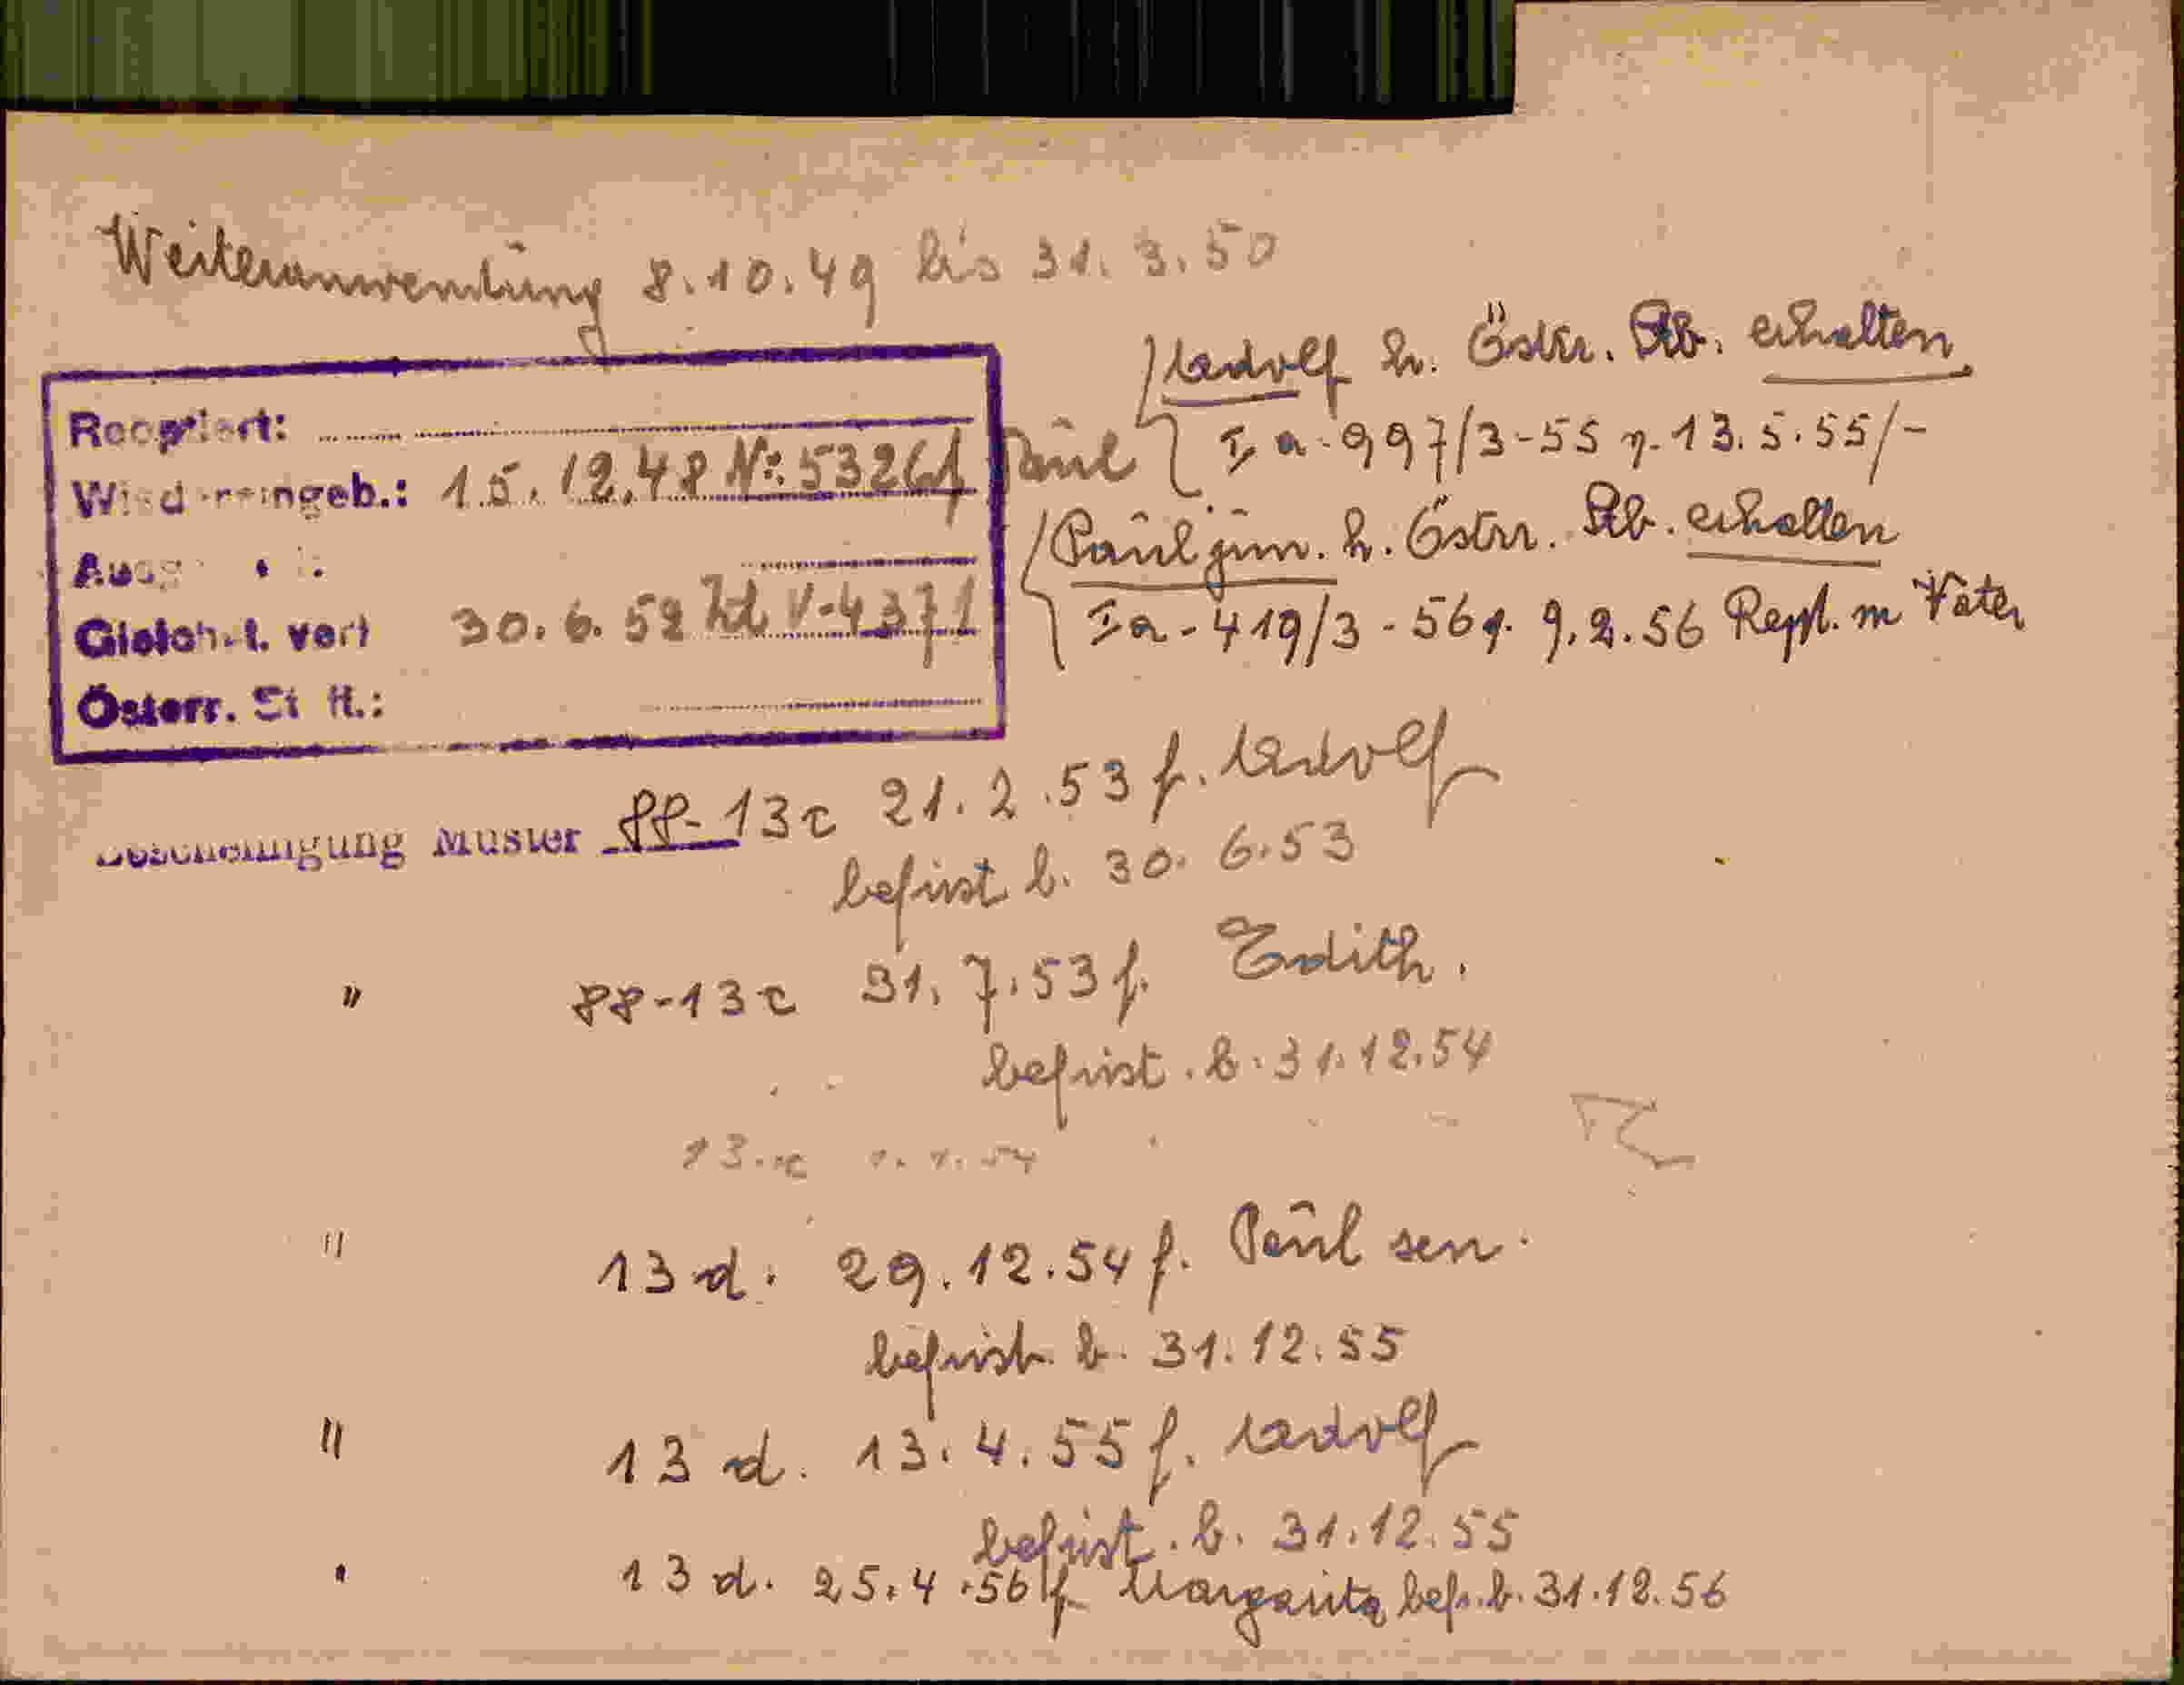 Weiteranwendung 8.10.49 bis 31.3.50
/Adolf h. Östrr. Stb. erhalten
Reoptiert:
Paul { I a-997/3-55 v. 13.5.55/-
Wiedereingeb.: 15.12.48 Nr. 53261
/Paul jun. h. Östrr. Stb. erhalten
Gleichst. verf 30.6.52 Zl V-4371
Ia-419/3-56 v. 9.2.56 Rept. m Vater
Österr. St B.:
Bescheinigung Muster 88-13c 21.2.53 f. Adolf
befrist b. 30.6.53
" 88-13c 31.7.53 f. Edith.
befrist. b. 31.12.54
" 13 d. 29.12.54 f. Paul sen.
befrist. b. 31.12.55
" 13 d. 13.4.55 f. Adolf
befrist. b. 31.12.55
13 d. 25.4.56 f. Margarita bef. b. 31.12.56